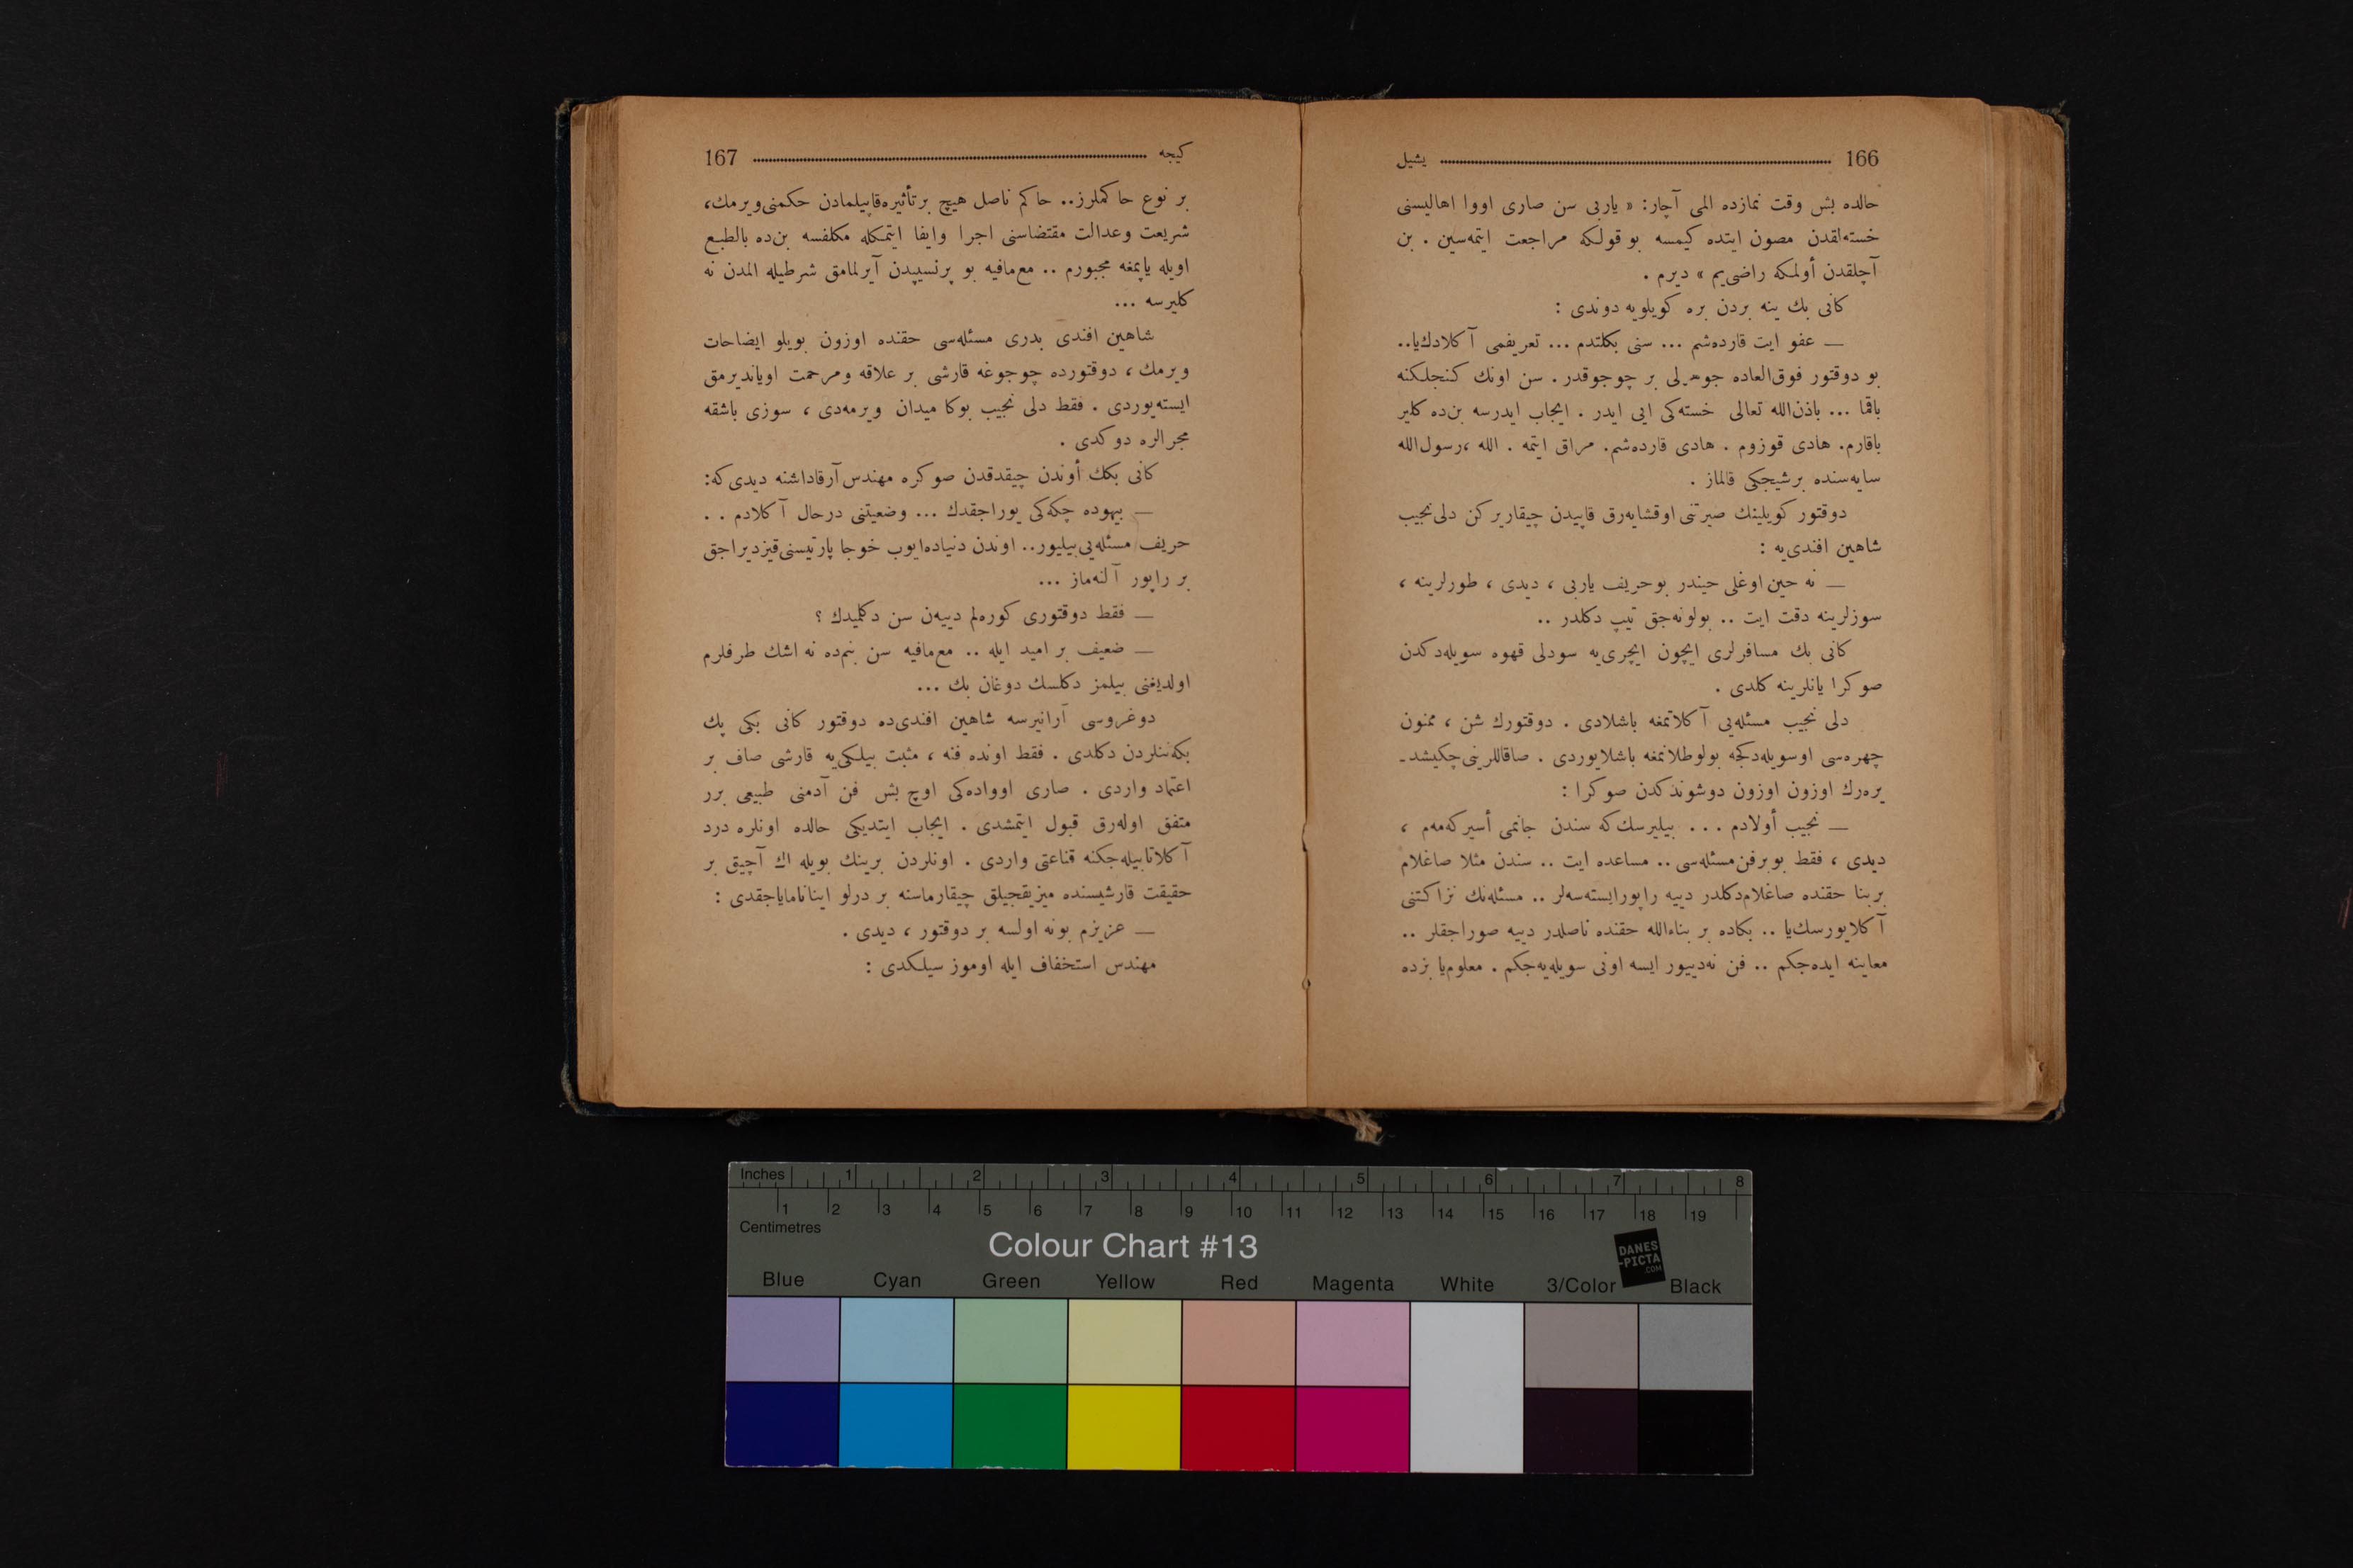 166 يشيل
حالده بش وقت نمازده المی آچار: « ياربی سن صاری اووا اهاليسنی
خسته‌لقدن مصون ايتده كيمسه بو قولكه مراجعت ايتمه‌سين . بن
آچلقدن أولمكه راضی‌يم » ديرم .
كانی بك ينه بردن بره كويلويه دوندی :
— عفو ايت قارده‌شم ... سنی بكلتدم ... تعريفمی آكلادك‌يا..
بو دوقتور فوق‌العاده جوهرلی بر چوجوقدر . سن اونك كنجلكنه
باقما ... باذن‌الله تعالی خسته‌كی ايی ايدر . ايجاب ايدرسه بن‌ده كلير
باقارم. هادی قوزوم . هادی قارده‌شم. مراق ايتمه . الله ،رسول‌الله
سايه‌سنده برشيجكی قالماز .
دوقتور كويلينك صيرتنی اوقشايه‌رق قاپيدن چيقاريركن دلی‌نجيب
شاهين افندی‌يه :
— نه حين اوغلی حيندر بوحريف ياربی ، ديدی ، طورلرينه ،
سوزلرينه دقت ايت .. بولونه‌جق تيپ دكلدر ..
كانی بك مسافرلری ايچون ايچری‌يه سودلی قهوه سويله‌دكدن
صوكرا يانلرينه كلدی .
دلی نجيب مسئله‌يی آكلاتمغه باشلادی . دوقتورك شن ، ممنون
چهره‌سی اوسويله‌دكجه بولوطلانمغه باشلايوردی . صاقاللرينی‌چكيشد-
يره‌رك اوزون اوزون دوشوندكدن صوكرا :
— نجيب أولادم ... بيليرسك‌كه سندن جانمی أسيركه‌مه‌م ،
ديدی ، فقط بوبرفن‌مسئله‌سی.. مساعده ايت .. سندن مثلا صاغلام
بربنا حقنده صاغلام‌دكلدر دييه راپورايسته‌سه‌لر .. مسئله‌نك نزاكتنی
آكلايورسك‌يا .. بكاده بر بناءالله حقنده ناصلدر دييه صوراجقلر ..
معاينه ايده‌جكم .. فن نه‌دييور ايسه اونی سويله‌يه‌جكم . معلوم‌يا بزده
كيجه 167
بر نوع حاكملرز.. حاكم ناصل هيچ برتأثيره‌قاپيلمادن حكمنی‌ويرمك،
شريعت وعدالت مقتضاسنی اجرا وايفا ايتمكله مكلفسه بن‌ده بالطبع
اويله ياپمغه مجبورم .. مع‌مافيه بو پرنسيپدن آيرلمامق شرطيله المدن نه
كليرسه ...
شاهين افندی بدری مسئله‌سی حقنده اوزون بويلو ايضاحات
ويرمك ، دوقتورده چوجوغه قارشی بر علاقه ومرحمت اوياندیرمق
ايسته‌يوردی . فقط دلی نجيب بوكا ميدان ويرمه‌دی ، سوزی باشقه
مجرالره دوكدی .
كانی بكك أوندن چيقدقدن صوكره مهندس‌آرقاداشنه ديدی‌كه:
— بيهوده چكه‌كی يوراجقدك ... وضعيتنی درحال آكلادم . .
حريف مسئله‌يی‌بيليور.. اوندن دنياده‌ايوب خوجا پارتيسنی‌قيزديراجق
بر راپور آلنه‌ماز ...
— فقط دوقتوری كوره‌لم دييه‌ن سن دكلميدك ؟
— ضعيف بر اميد ايله .. مع‌مافيه سن بنم‌ده نه اشك طرفلرم
اولديغنی بيلمز دكلسك دوغان بك ...
دوغروسی آرانيرسه شاهين افندی‌ده دوقتور كانی بكی پك
بكه‌ننلردن دكلدی . فقط اونده فنه ، مثبت بيلكی‌يه قارشی صاف بر
اعتماد واردی . صاری اوواده‌كی اوچ بش فن آدمنی طبيعی برر
متفق اوله‌رق قبول ايتمشدی . ايجاب ايتديكی حالده اونلره درد
آكلاتابيله‌جكنه قناعتی واردی . اونلردن برينك بويله اك آچيق بر
حقيقت قارشيسنده ميزيقجيلق چيقارماسنه بر درلو اينانامایاجقدی :
— عزيزم بونه اولسه بر دوقتور ، ديدی .
مهندس استخفاف ايله اوموز سيلكدی :
Inches 1 2 3 4 5 6 7 8
1 2 3 4 5 6 7 8 9 10 11 12 13 14 15 16 17 18 19
Centimetres
Colour Chart #13
DANES
-PICTA
.COM
Blue Cyan Green Yellow Red Magenta White 3/Color Black